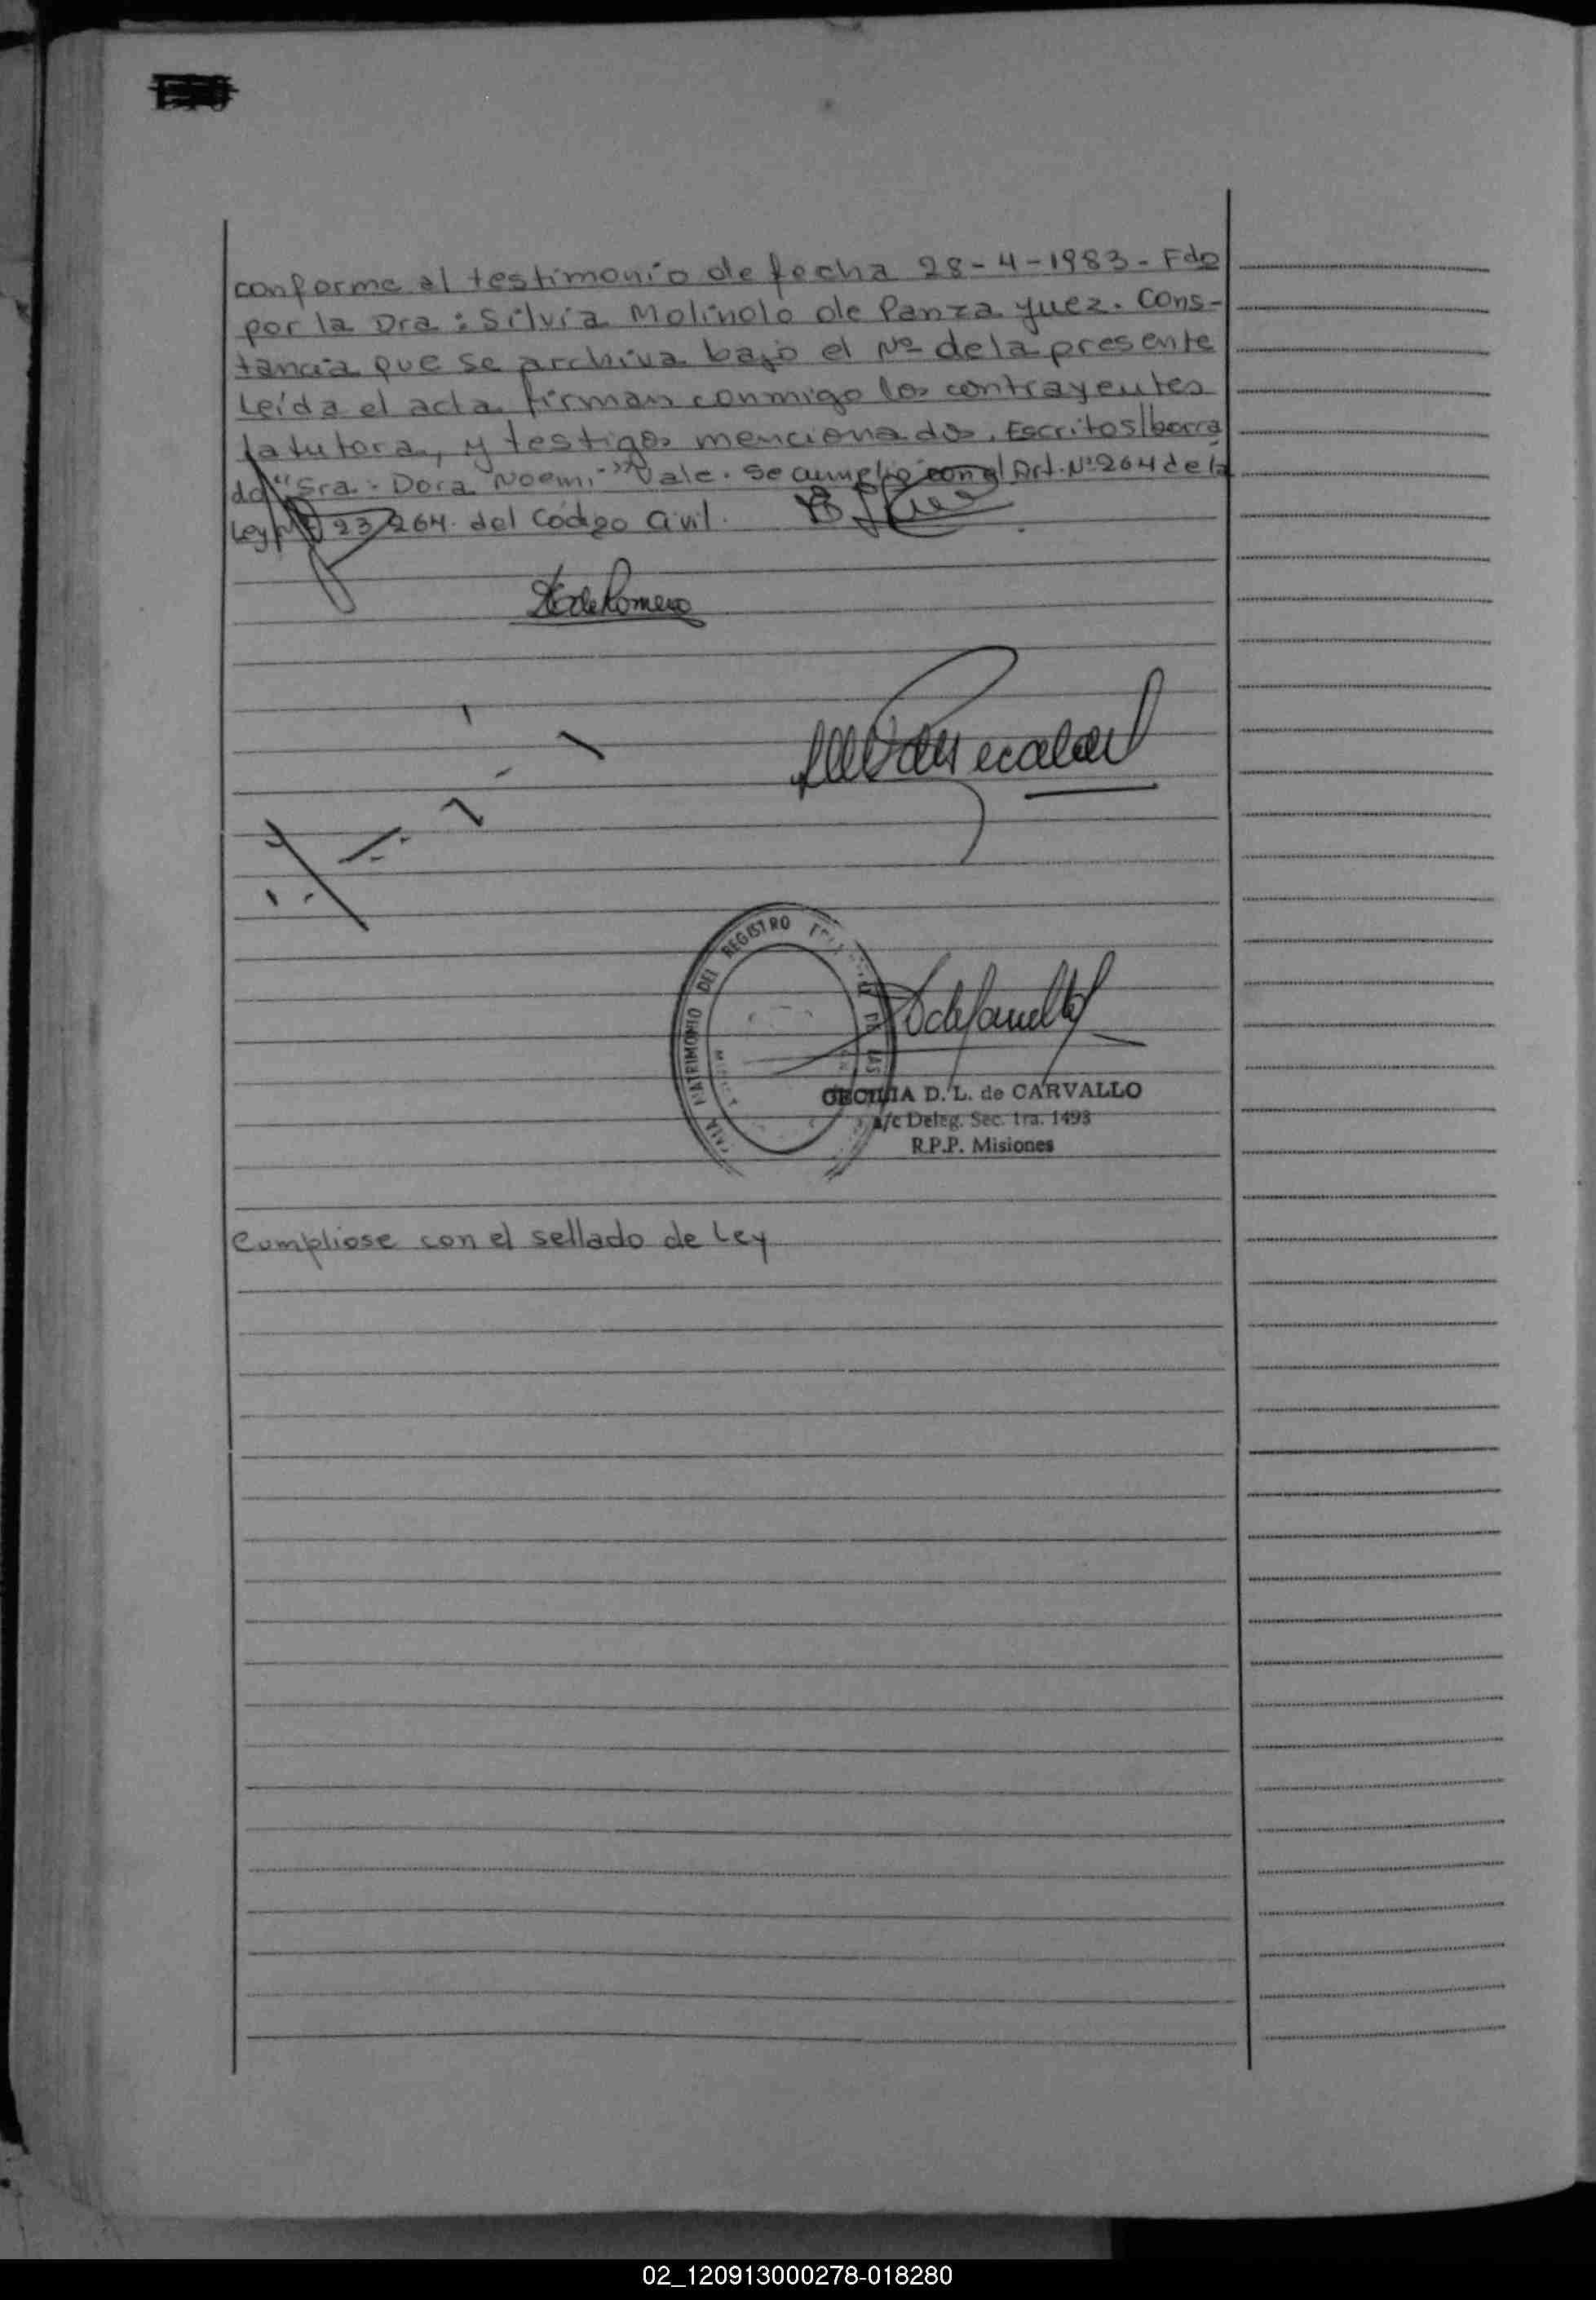 conforme al testimonio de fecha 28-4-1983- Fdo
por la Dra: Silvia Molinolo de Panza Juez. Cons-
tancia que se archiva bajo el Nº de la presente
Leída el acta firman conmigo los contrayentes
la tutora, y testigos mencionados. Escritos/borra
do "Sra. Dora Noemi" Vale. Se cumplio con el Art. Nº 264 de la
Ley Nº 23264. del Código Civil.
de Romero
MATRIMONIO DEL REGISTRO
CECILIA D. L. de CARVALLO
a/c Deleg. Sec. 1ra. 1493
R.P.P. Misiones
Cumpliose con el sellado de Ley
02_120913000278-018280